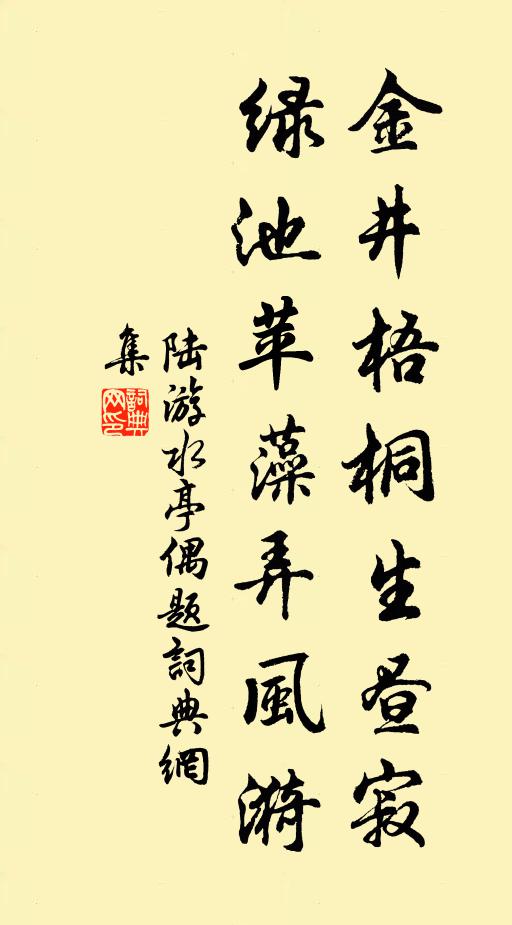 金井梧桐生昼寂
绿池苹藻弄風漪
陆游水亭偶题詞典網
集
詞典网印